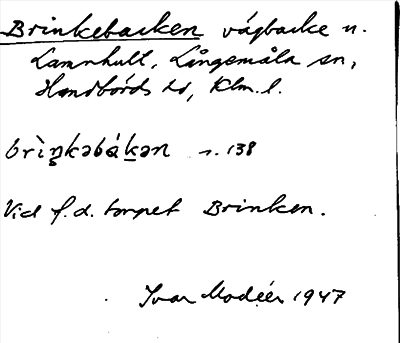 Brinkebacken vägbacke n.
Lamnhult, Långemåla sn,
Handbörds hd, Klm. l.
brìŋkəbákən s. 138
Vid f.d. torpet Brinken.
Ivar Modéer 1947